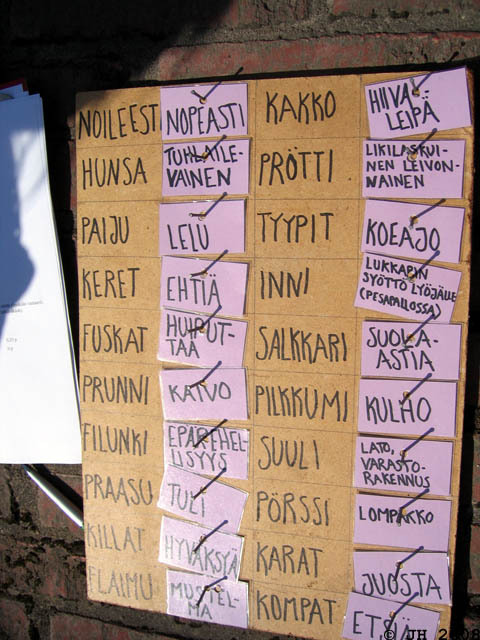 NOILEEST NOPEASTI KAKKO HIIVA-
LEIPÄ
HUNSA TUHLAILE-
VAINEN PRÖTTI LIKILASKUI-
NEN LEIVON-
NAINEN
PAIJU LELU TYYPIT KOEAJO
KERET EHTIÄ INNI LUKKARIN
SYÖTTÖ LYÖJÄLLE
(PESÄPALLOSSA)
FUSKAT HUIPUT-
TAA SALKKARI SUOLA-
ASTIA
PRUNNI KAIVO PILKKUMI KULHO
FILUNKI EPÄREHEL-
LISYYS SUULI LATO,
VARASTO-
RAKENNUS
PRAASU TULI PÖRSSI LOMPAKKO
KILLAT HYVÄKSYÄ KARAT JUOSTA
FLAIMU MUSTEL-
MA KOMPAT ETSIÄ
© JH 2008